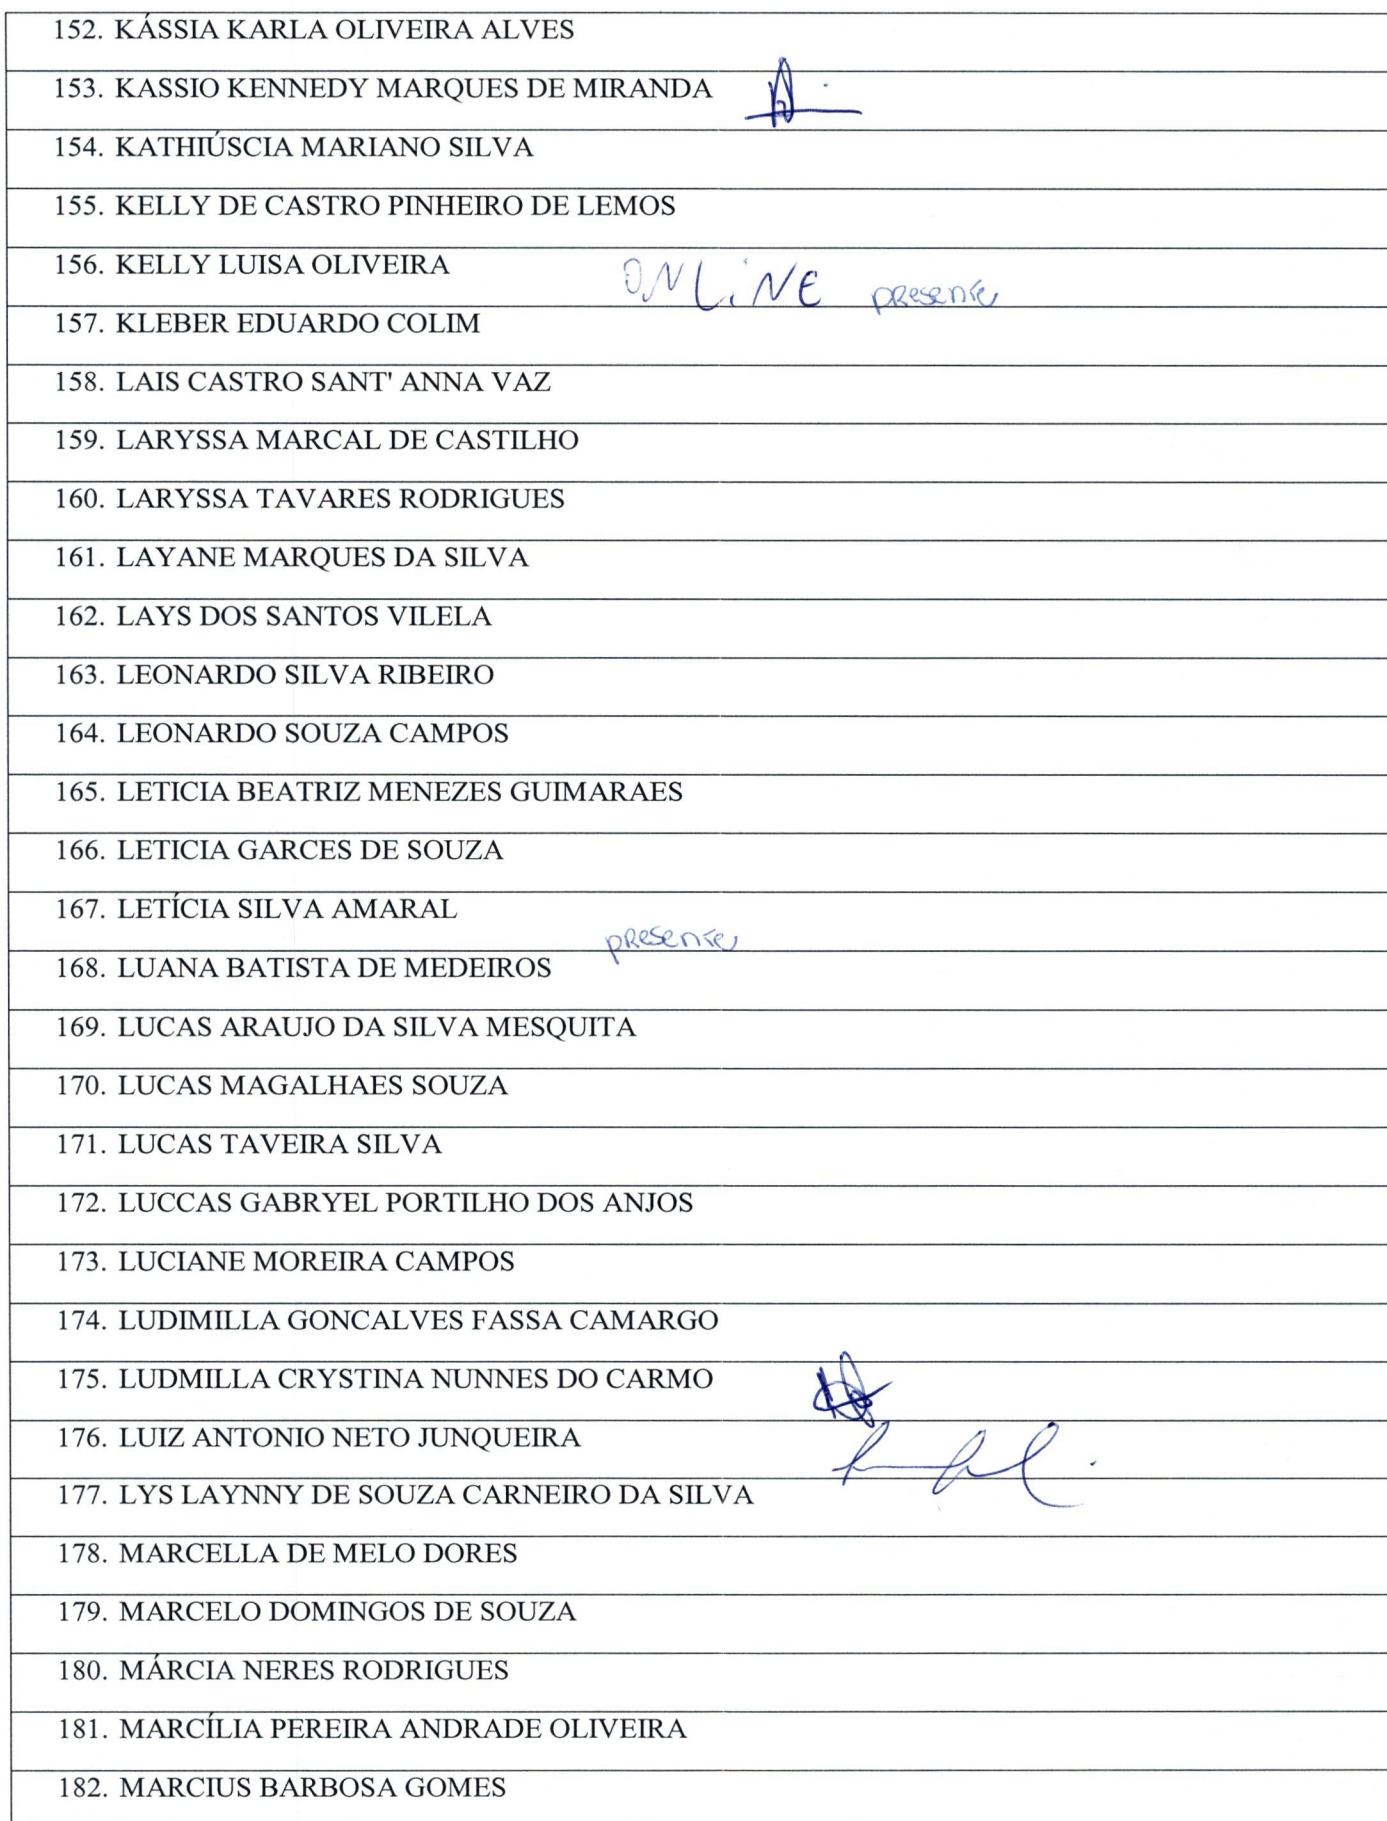 152. KÁSSIA KARLA OLIVEIRA ALVES
153. KASSIO KENNEDY MARQUES DE MIRANDA
154. KATHIÚSCIA MARIANO SILVA
155. KELLY DE CASTRO PINHEIRO DE LEMOS
156. KELLY LUISA OLIVEIRA ONLINE presente
157. KLEBER EDUARDO COLIM
158. LAIS CASTRO SANT' ANNA VAZ
159. LARYSSA MARCAL DE CASTILHO
160. LARYSSA TAVARES RODRIGUES
161. LAYANE MARQUES DA SILVA
162. LAYS DOS SANTOS VILELA
163. LEONARDO SILVA RIBEIRO
164. LEONARDO SOUZA CAMPOS
165. LETICIA BEATRIZ MENEZES GUIMARAES
166. LETICIA GARCES DE SOUZA
167. LETÍCIA SILVA AMARAL presente
168. LUANA BATISTA DE MEDEIROS
169. LUCAS ARAUJO DA SILVA MESQUITA
170. LUCAS MAGALHAES SOUZA
171. LUCAS TAVEIRA SILVA
172. LUCCAS GABRYEL PORTILHO DOS ANJOS
173. LUCIANE MOREIRA CAMPOS
174. LUDIMILLA GONCALVES FASSA CAMARGO
175. LUDMILLA CRYSTINA NUNNES DO CARMO
176. LUIZ ANTONIO NETO JUNQUEIRA
177. LYS LAYNNY DE SOUZA CARNEIRO DA SILVA
178. MARCELLA DE MELO DORES
179. MARCELO DOMINGOS DE SOUZA
180. MÁRCIA NERES RODRIGUES
181. MARCÍLIA PEREIRA ANDRADE OLIVEIRA
182. MARCIUS BARBOSA GOMES